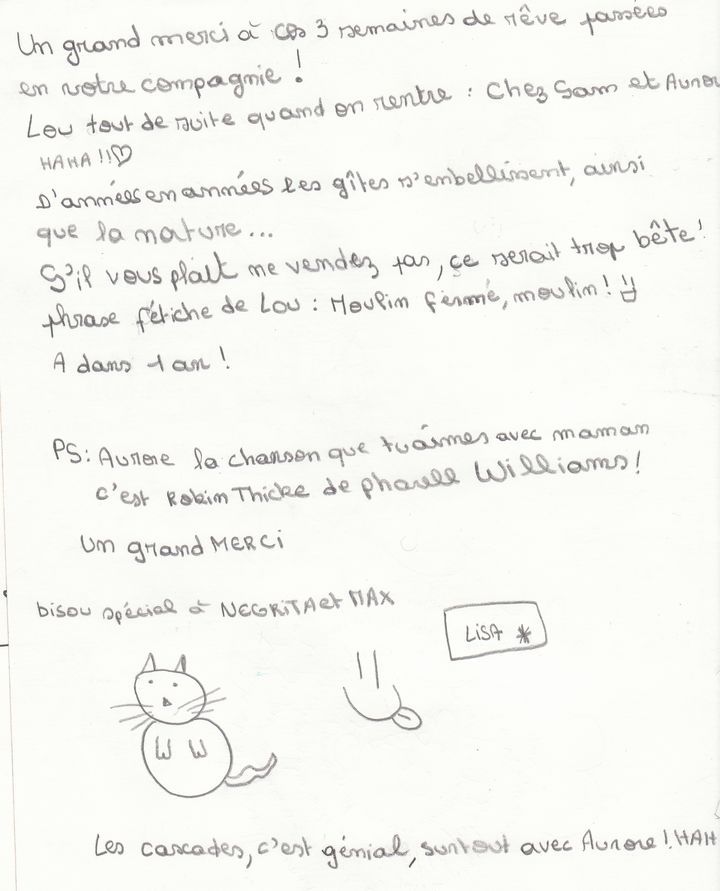 Un grand merci à ces 3 semaines de rêve passées
en votre compagnie !
Lou tout de suite quand on rentre : Chez Sam et Auror
HAHA !!♡
D'années en années les gîtes s'embellissent, ainsi
que la nature...
S'il vous plaît ne vendez pas, ce serait trop bête !
phrase fétiche de Lou : Moulin fermé, moulin !
A dans 1 an !
PS : Aurore la chanson que tu aimes avec maman
c'est Robin Thicke de pharell Williams !
Un grand MERCI
bisou spécial à NEGRITA et MAX
LISA *
Les cascades, c'est génial, surtout avec Aurore ! HAH